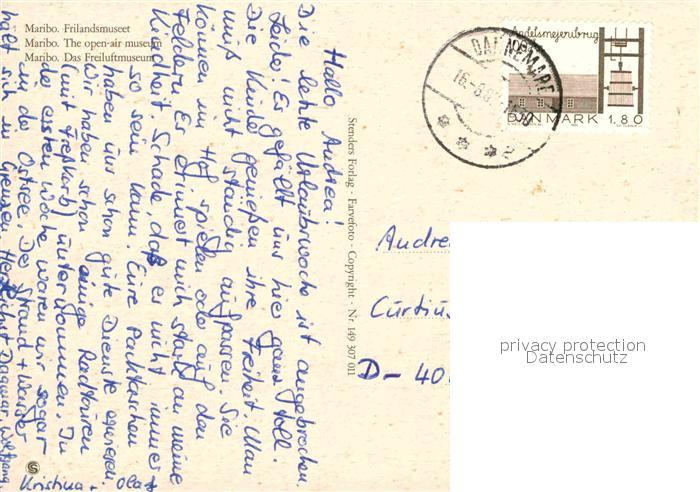 Maribo. Frilandsmuseet
Maribo. The open-air museum
Maribo. Das Freiluftmuseum
Hallo Andrea!
Die letzte Urlaubswoche ist angebrochen.
Leider! Es gefällt uns hier ganz toll.
Die Kinder genießen ihre Freiheit. Man
muß nicht ständig aufpassen. Sie
können im Hof spielen oder auf den
Feldern. Es erinnert mich stark an meine
Kindheit. Schade, daß es nicht immer
so sein kann. Eure Packtaschen
haben uns schon gute Dienste erwiesen.
Wir haben schon einige Radtouren
(mit Freßkorb) unternommen. In
der ersten Woche waren wir sogar
in der Ostsee. Der Strand + Wasser
hält sich in Grenzen. Herzlichst Dagmar, Wolfgang,
Kristina + Olaf
Stenders Forlag - Farvefoto - Copyright - Nr. 149 307 011
Andelsmejeribrug
DANMARK 1.80
DANNEMARE
Andre
Curtius
D- 40
privacy protection
Datenschutz